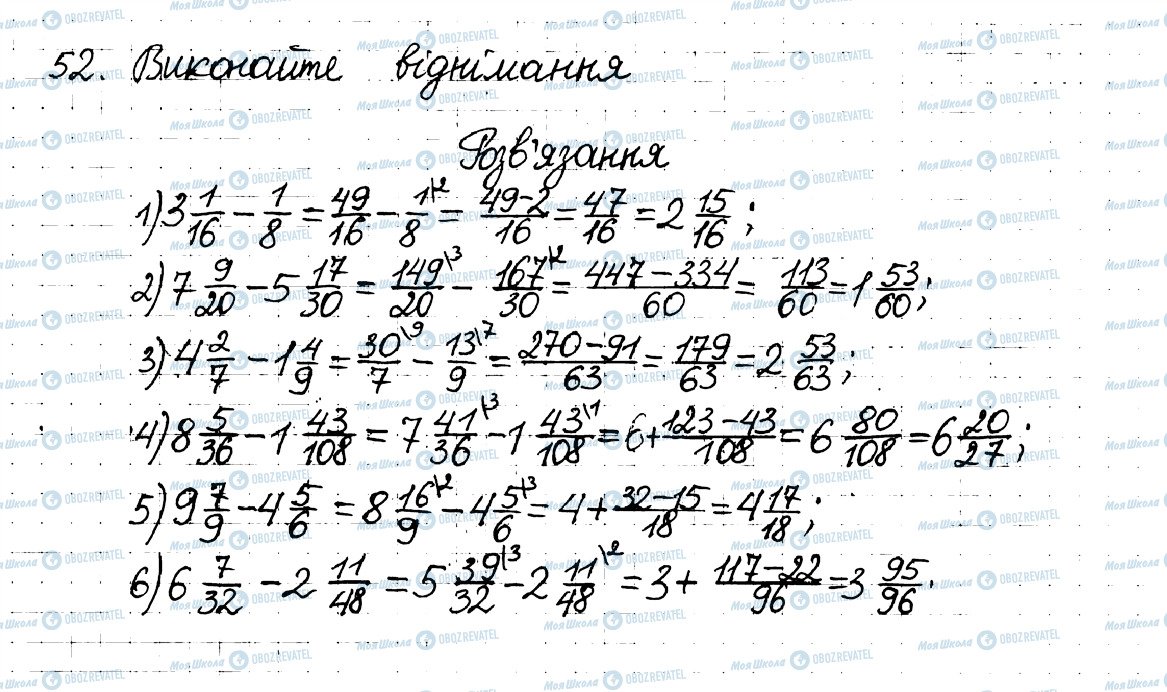 52. Виконайте віднімання
Розв'язання
1) 3 1/16 − 1/8 = 49/16 − 1/8\2 = (49−2)/16 = 47/16 = 2 15/16;
2) 7 9/20 − 5 17/30 = 149/20\3 − 167/30\2 = (447−334)/60 = 113/60 = 1 53/60;
3) 4 2/7 − 1 4/9 = 30/7\9 − 13/9\7 = (270−91)/63 = 179/63 = 2 53/63;
4) 8 5/36 − 1 43/108 = 7 41/36\3 − 1 43/108\1 = 6 + (123−43)/108 = 6 80/108 = 6 20/27;
5) 9 7/9 − 4 5/6 = 8 16/9\2 − 4 5/6\3 = 4 + (32−15)/18 = 4 17/18;
6) 6 7/32 − 2 11/48 = 5 39/32\3 − 2 11/48\2 = 3 + (117−22)/96 = 3 95/96.
Моя Школа OBOZREVATEL